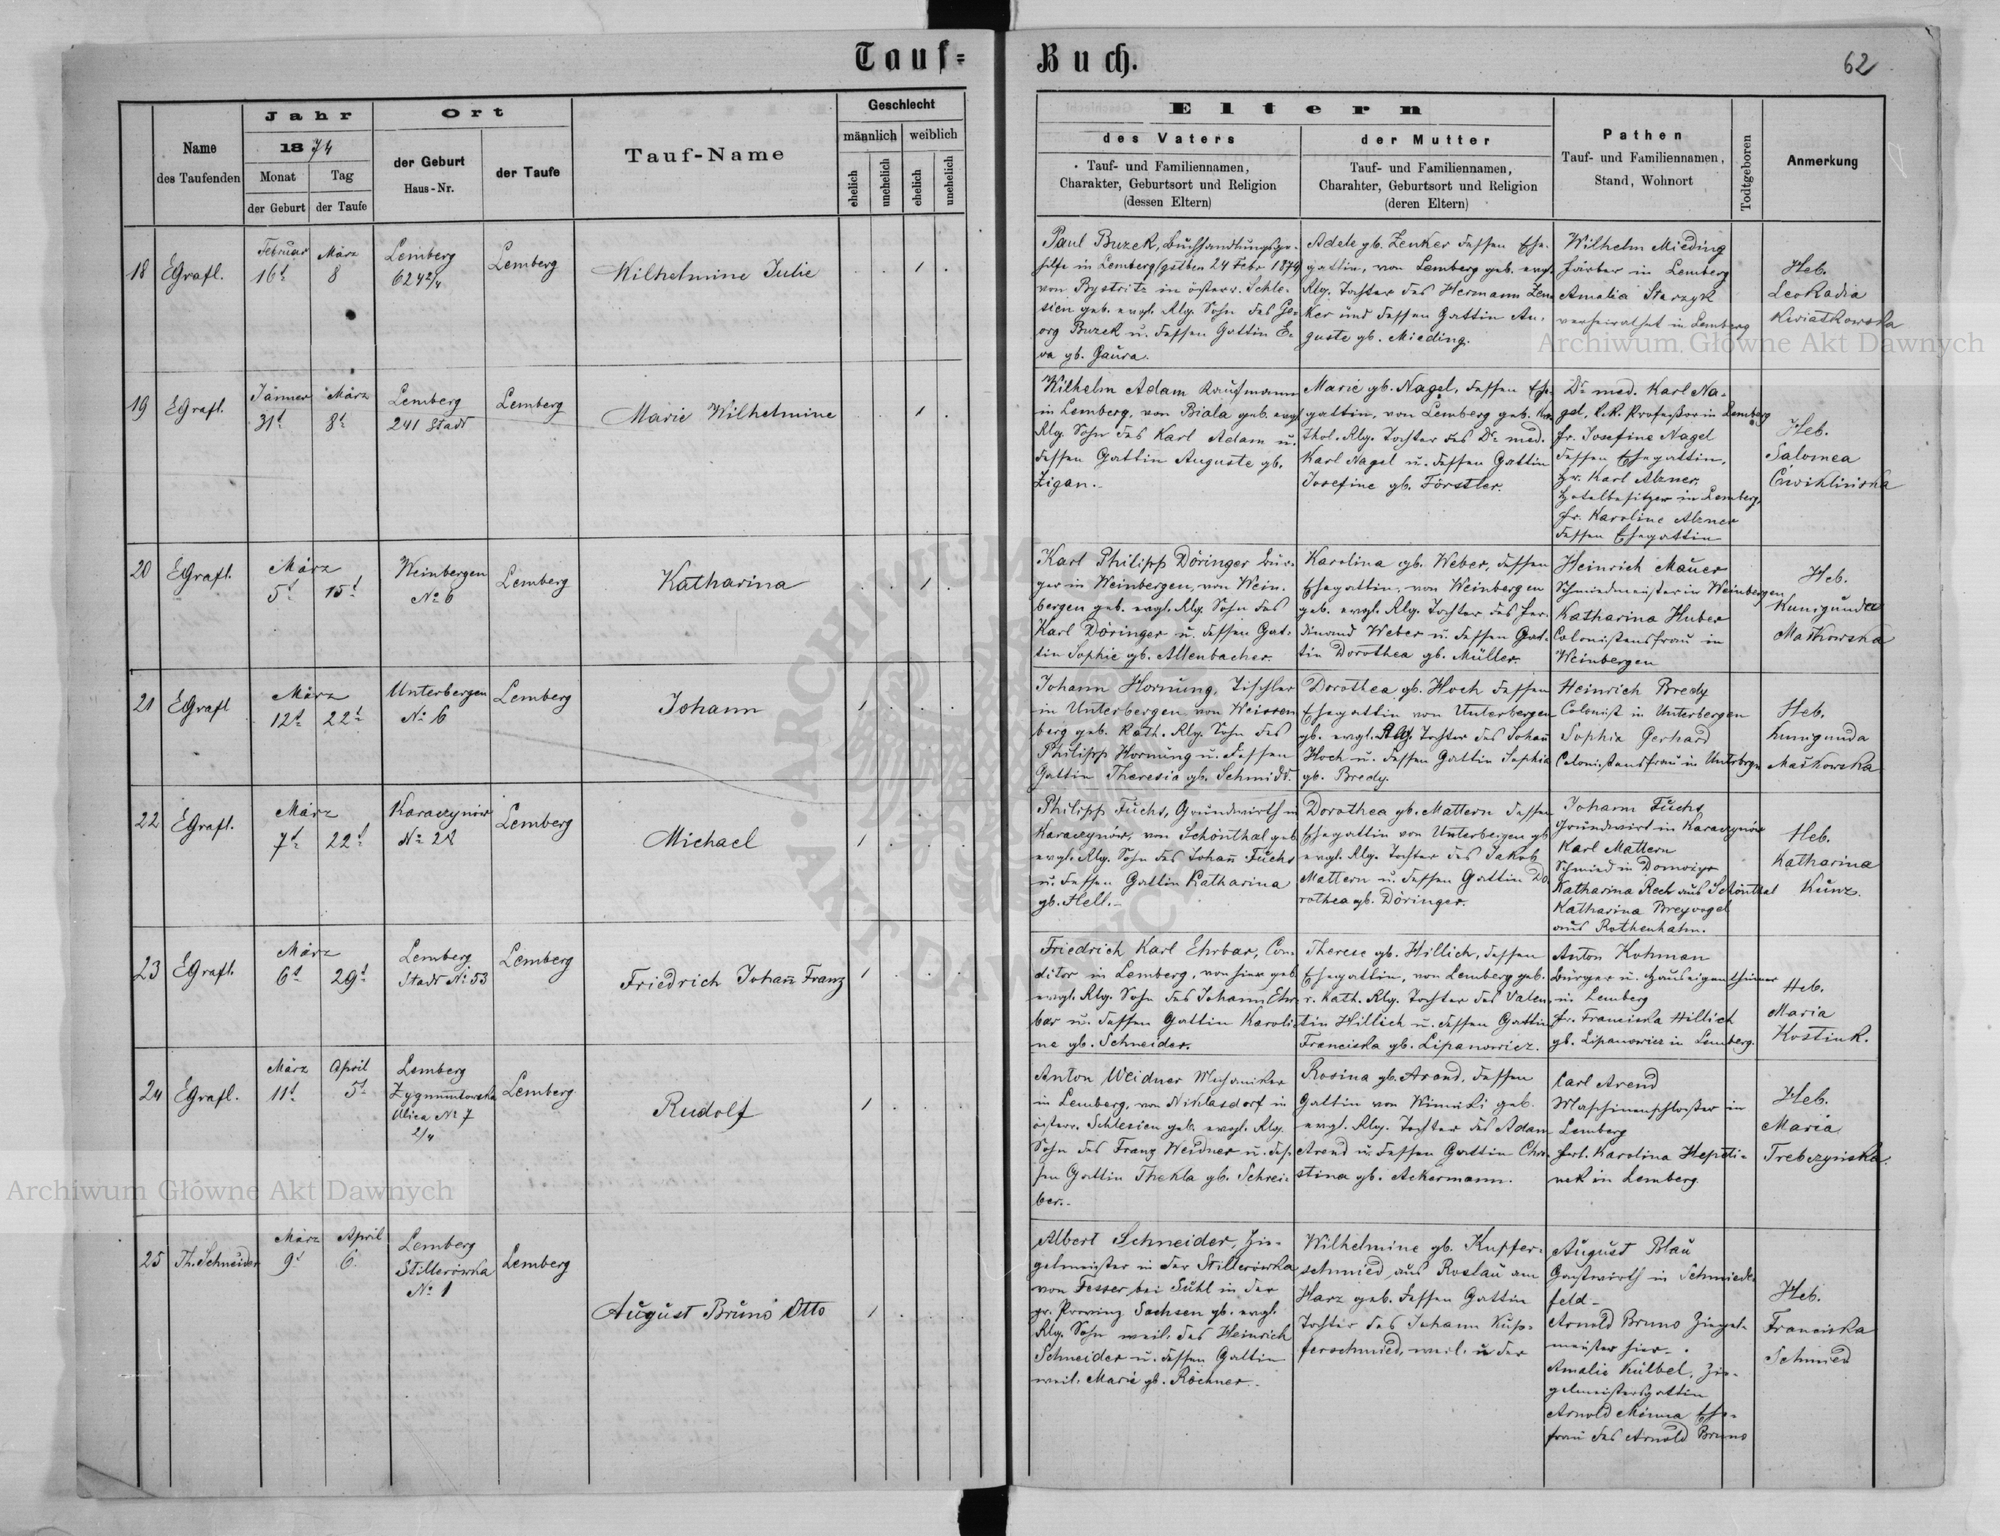 Tauf-
Buch.
62
Name
des Taufenden
Jahr
1874
Monat
der Geburt
Tag
der Taufe
Ort
der Geburt
Haus-Nr.
der Taufe
Tauf-Name
Geschlecht
männlich
weiblich
ehelich
unehelich
ehelich
unehelich
Eltern
des Vaters
Tauf- und Familiennamen,
Charakter, Geburtsort und Religion
(dessen Eltern)
der Mutter
Tauf- und Familiennamen,
Charahter, Geburtsort und Religion
(deren Eltern)
Pathen
Tauf- und Familiennamen,
Stand, Wohnort
Todtgeboren
Anmerkung
18
EGrafl.
Februar
16t
März
8
Lemberg
624 2/4
Lemberg
Wilhelmine Julie
1
Paul Buzek, Buchhandlungsge-
hilfe in Lemberg (gstben 24 Febr 1874)
von Bystritz in österr. Schle-
sien geb. evgl. Rlg. Sohn des Ge-
org Buzek u. dessen Gattin E-
va gb. Gaura.
Adele gb. Zenker dessen Ehe-
gattin, von Lemberg geb. evgl.
Rlg. Tochter des Hermann Zen-
ker und dessen Gattin Au-
guste gb. Mieding.
Wilhelm Mieding
Färber in Lemberg
Amalia Starzyk
verheirathet in Lemberg
Heb.
Leokadia
Kwiatkowska
19
EGrafl.
Jänner
31t
März
8t
Lemberg
241 Stadt
Lemberg
Marie Wilhelmine
1
Wilhelm Adam Kaufmann
in Lemberg, von Biala geb. evgl
Rlg. Sohn des Karl Adam u.
dessen Gattin Auguste gb.
Zigan.-
Marie gb. Nagel, dessen Ehe-
gattin, von Lemberg geb. Ka-
thol. Rlg. Tochter des Dr med.
Karl Nagel u. dessen Gattin
Josefine gb. Förstler.
Dr med. Karl Na-
gel, k.k. Professor in Lemberg
Fr. Josefine Nagel
dessen Ehegattin,
Hr. Karl Alzner,
Hotelbesitzer in Lemberg,
Fr. Karoline Alzner
dessen Ehegattin
Heb.
Salomea
Cwiklinska
20
EGrafl.
März
5t
15t
Weinbergen
No 6
Lemberg
Katharina
1
Karl Philipp Döringer Bür-
ger in Weinbergen, von Wein-
bergen geb. evgl. Rlg. Sohn des
Karl Döringer u. dessen Gat-
tin Sophie gb. Altenbacher.
Karolina gb. Weber, dessen
Ehegattin, von Weinbergen
geb. evgl. Rlg. Tochter des Fer-
dinand Weber u. dessen Gat-
tin Dorothea gb. Müller.
Heinrich Mauer
Schmiedmeister in Weinbergen
Katharina Huber
Colonistensfrau in
Weinbergen
Heb.
Kunigunda
Maškowska
21
EGrafl
März
12t
22t
Unterbergen
No 6
Lemberg
Johann
1
Johann Hornung, Tischler
in Unterbergen von Weissen
berg geb. Kath. Rlg. Sohn des
Philipp Hornung u. dessen
Gattin Theresia gb. Schmidt.
Dorothea gb. Hoch dessen
Ehegattin von Unterbergen
gb. evgl. Rlg. Tochter des Johann
Hoch u. dessen Gattin Sophia
gb. Bredy.
Heinrich Bredy
Colonist in Unterbergen
Sophia Gerhard
Colonistensfrau in Unterbrgn
Heb.
Kunigunda
Maškowska
22
EGrafl.
März
7t
22t
Karaczynów
No 28
Lemberg
Michael
1
Philipp Fuchs, Grundwirth in
Karaczynów, von Schönthal geb
evgl. Rlg. Sohn des Johann Fuchs
u. dessen Gattin Katharina
gb. Helt.-
Dorothea gb. Mattern dessen
Ehegattin von Unterbergen gb
evgl. Rlg. Tochter des Jakob
Mattern u. dessen Gattin Do-
rothea gb. Döringer.
Johann Fuchs,
Grundwirt in Karaczynów
Karl Mattern
Schmied in
Katharina Rech aus Schönthal
Katharina Breyvogel
aus Rothenhahn.
Heb.
Katharina
Kunz.
23
EGrafl.
März
6t
29t
Lemberg
Stadt No 53
Lemberg
Friedrich Johann Franz
1
Friedrich Karl Ehrbar, Con-
ditor in Lemberg, von hier geb
evgl. Rlg. Sohn des Johann Ehr-
bar u. dessen Gattin Karoli-
ne gb. Schneider.
Therese gb. Hillich, dessen
Ehegattin, von Lemberg geb.
r. Kath. Rlg. Tochter des Valen-
tin Hillich u. dessen Gattin
Franciska gb. Lipanowicz.
Anton Kohman
Bürger u. Hauseigenthümer
in Lemberg
Fr. Franciska Hillich
gb. Lipanowicz in Lemberg.
Heb.
Maria
Kostiuk.
24
EGrafl.
März
11t
April
5t
Lemberg
Zygmuntowska
Ulica No 7
2/4
Lemberg
Rudolf
1
Anton Weidner Mechaniker
in Lemberg, von Niklasdorf in
österr. Schlesien geb. evgl. Rlg.
Sohn des Franz Weidner u. des-
sen Gattin Thekla gb. Schrei-
ber.-
Rosina gb. Arend, dessen
Gattin von Winniki geb.
evgl. Rlg. Tochter des Adam
Arend u. dessen Gattin Chri-
stina gb. Ackermann.
Carl Arend
Maschinenschlosser in
Lemberg
Frl. Karolina
in Lemberg
Heb.
Maria
Trebczyńska.
25
Th. Schneider
März
9t
April
6
Lemberg
Stillerówka
No 1
Lemberg
August Bruno Otto
1
Albert Schneider, Zie-
gelmeister in der Stillerówka
von Fesser bei Suhl in der
pr. Provinz Sachsen gb. evgl.
Rlg. Sohn weil. des Heinrich
Schneider u. dessen Gattin
weil. Marie gb. Röchner.-
Wilhelmine gb. Kupfer-
schmied aus Roslau am
Harz geb. dessen Gattin
Tochter des Johann Kup-
ferschmied, weil. u der
August Blau
Gastwirth in Schmiede-
feld-
Arnold Bruno Ziegel-
meister hier-.
Amalie Külbel, Zie-
gelmeistersgattin
Arnold Minna Ehe-
frau des Arnold Bruno
Heb.
Franciska
Schmied
Archiwum Główne Akt Dawnych
Archiwum Główne Akt Dawnych